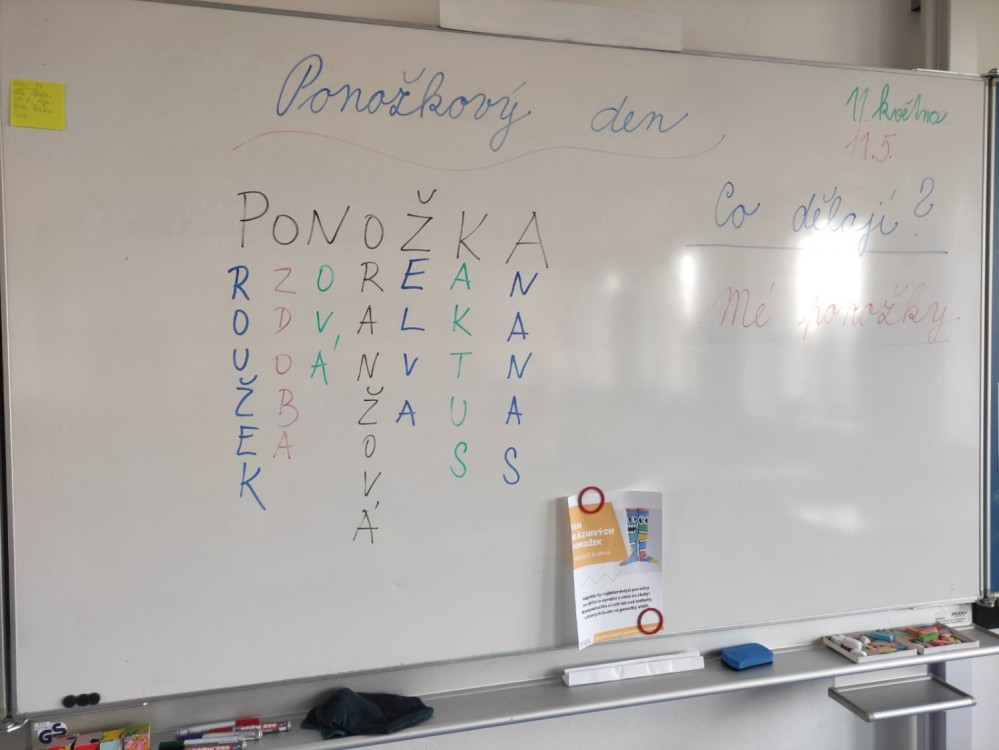 Ponožkový den
11. května
11.5.
PONOŽKA
ROUŽEK
ZDOBA
OVÁ
RANŽOVÁ
ELVA
AKTUS
NANAS
Co dělají?
Mé ponožky.
DEN
BLÁZNIVÝCH
PONOŽEK
GS
edding